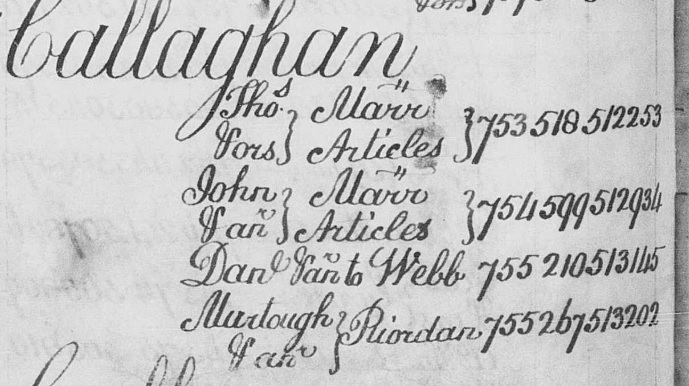 Callaghan
Thos } Marr } 753 518 512253
Vors } Articles
John } Marr } 754 599 512934
Van } Articles
Danl Van to Webb 755 210 513145
Murtough } Riordan 755 267 513202
Van